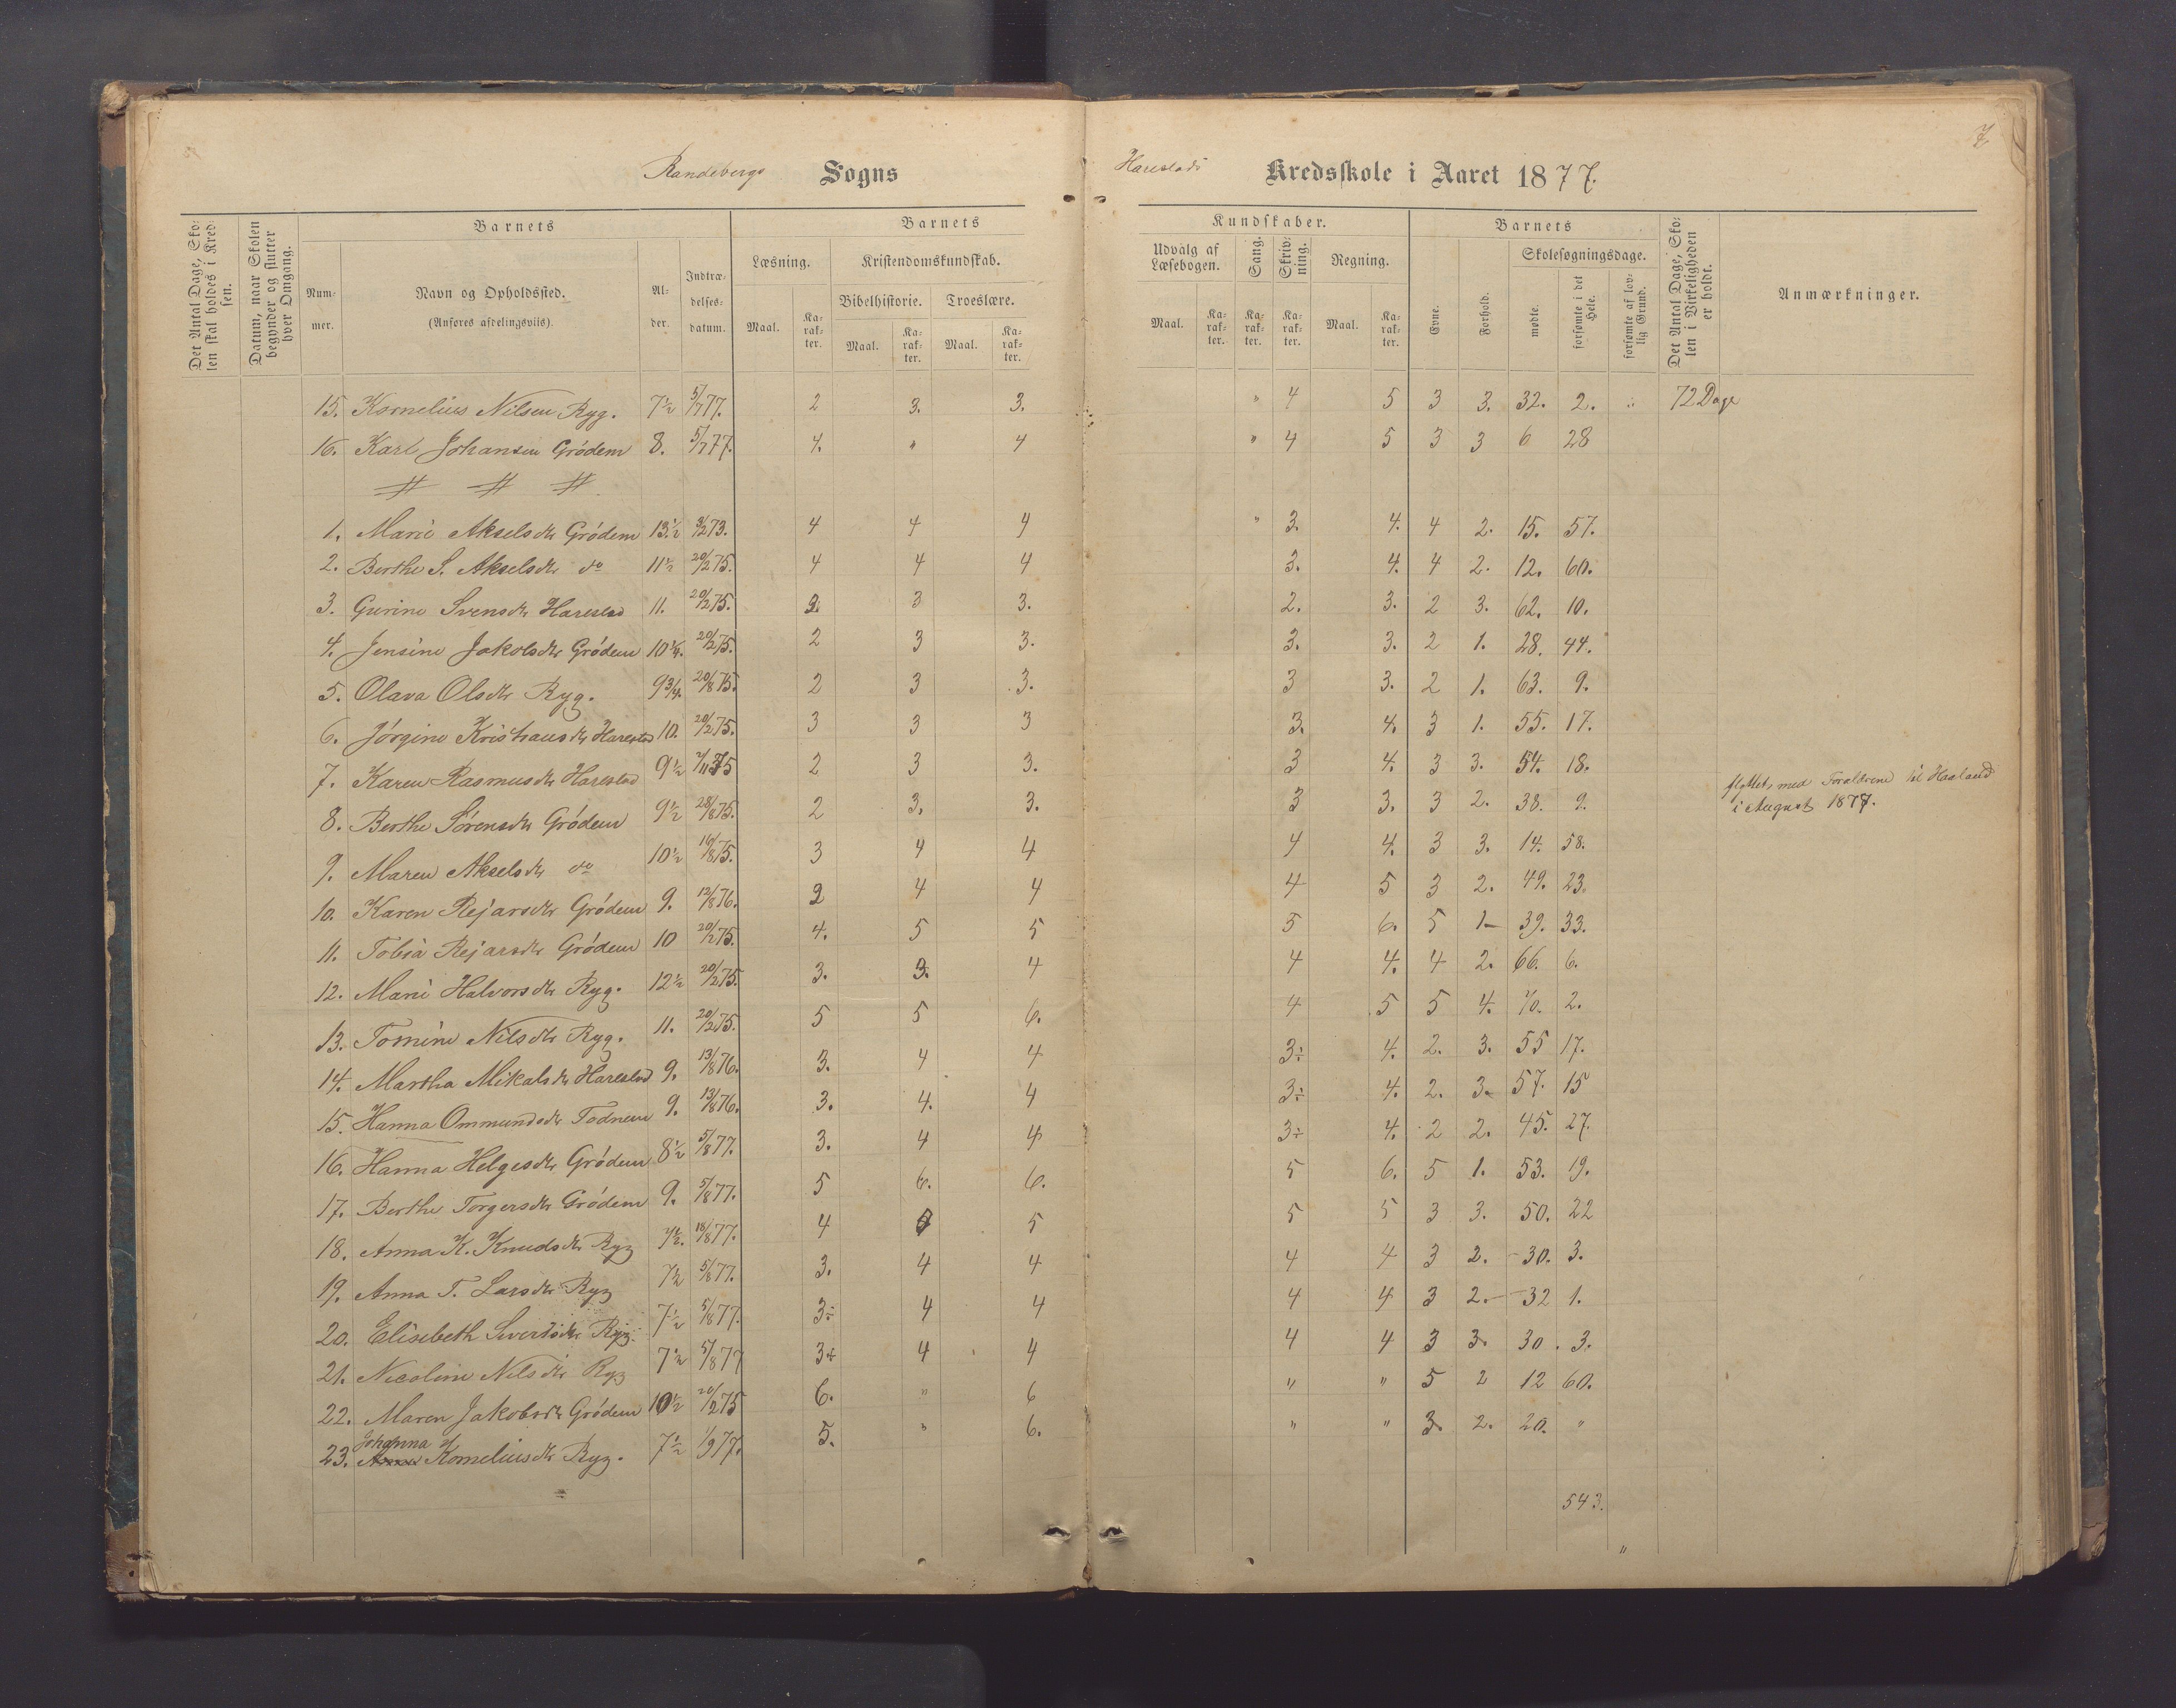 7
Randebergs Sogns
Harestads Kredsskole i Aaret 1877.
Det Antal Dage, Skolen skal holdes i Kredsen.
Datum, naar Skolen begynder og slutter hver Omgang.
Barnets
Nummer.
Navn og Opholdssted.
(Anføres afdelingsviis).
Alder.
Indtrædelsesdatum.
Barnets
Læsning.
Maal.
Karakter.
Kristendomskundskab.
Bibelhistorie.
Maal.
Karakter.
Troeslære.
Maal.
Karakter.
Kundskaber.
Udvalg af Læsebogen.
Maal.
Karakter.
Sang.
Karakter.
Skrivning.
Karakter.
Regning.
Maal.
Karakter.
Barnets
Evne.
Forhold.
Skolesøgningsdage.
mødte.
forsømte i det Hele.
forsømte af lovlig Grund.
Det Antal Dage, Skolen i Virkeligheden er holdt.
Anmærkninger.
15. Kornelius Nilsen Ryg. 7½ 5/7 77. 2 3. 3. " 4 5 3 3. 32. 2. " 72 Dage
16. Karl Johansen Grödem 8. 5/7 77. 4. " 4 " 4 5 3 3 6 28
1. Marie Akselsdtr Grödem 13½ 3/2 73. 4 4 4 " 3. 4. 4 2. 15. 57.
2. Berthe S. Akselsdtr do 11½ 20/2 75. 4 4 4 3. 4. 4 2. 12. 60.
3. Gurine Svensdtr Harestad 11. 20/2 75. 2 3 3. 2. 3. 2 3. 62. 10.
4. Jensine Jakobsdtr Grödem 10¼. 20/2 75. 2 3 3. 3. 3. 2 1. 28. 44.
5. Olava Olsdtr Ryg. 9¾. 20/8 75. 2 3 3. 3 3. 2 1. 63. 9.
6. Jörgine Kristiansdtr Harestad 10. 20/2 75. 3 3 3 3. 4. 3 1. 55. 17.
7. Karen Rasmusdtr Harestad 9½ 2/11 75 2 3 3. 3 4. 3 3. 54. 18.
8. Berthe Sörensdtr Grödem 9½ 28/8 75. 2 3. 3. 3 3. 3 2. 38. 9. flyttet med Forældrene til Haaland
i August 1877.
9. Maren Akselsdtr do 10½ 16/8 75. 3 4 4 4 4. 3 3. 14. 58.
10. Karen Rejarsdtr Grödem 9. 12/8 76. 2 4 4 4 5 3 2. 49. 23.
11. Tobia Rejarsdtr Grödem 10 20/2 75. 4. 5 5 5 6. 5 1 39. 33.
12. Mari Halvorsdtr Ryg. 12½ 20/2 75. 3. 3. 4 4 4. 4 2. 66. 6.
13. Tomine Nilsdtr Ryg. 11. 20/2 75. 5 5 6. 4 5 5 4. 70. 2.
14. Martha Mikalsdtr Harestad 9. 13/8 76. 3. 4 4 3÷ 4. 2. 3. 55 17.
15. Hanna Ommundsdtr Todnem 9. 13/8 76. 3. 4. 4 3÷ 4. 2. 3. 57. 15
16. Hanna Helgesdtr Grödem 8½ 5/8 77. 3. 4 4 3÷ 4. 2 2. 45. 27.
17. Berthe Torgersdtr Grödem 9. 5/8 77. 5 6. 6. 5 6. 5 1. 53. 19.
18. Anna K. Knudsdtr Ryg 7½. 18/8 77. 4 5 5 5 3 3. 50. 22
19. Anna T. Larsdtr Ryg 7½ 5/8 77. 3. 4 4 4 4 3 2. 30. 3.
20. Elisebeth Sivertsdtr Ryg. 7½ 5/8 77. 3÷ 4 4 4 4 3 2. 32 1.
21. Nicoline Nilsdtr Ryg 7½ 5/8 77 3÷ 4 4 4 4 3 3. 30. 3.
22. Maren Jakobsdtr Grödem 10½ 20/2 75 6. " 6 " " 5 2 12 60.
Johanna
23. Korneliusdtr Ryg. 7½ 1/9 77. 5. " 6. " " 3. 2. 20. "
543.
"